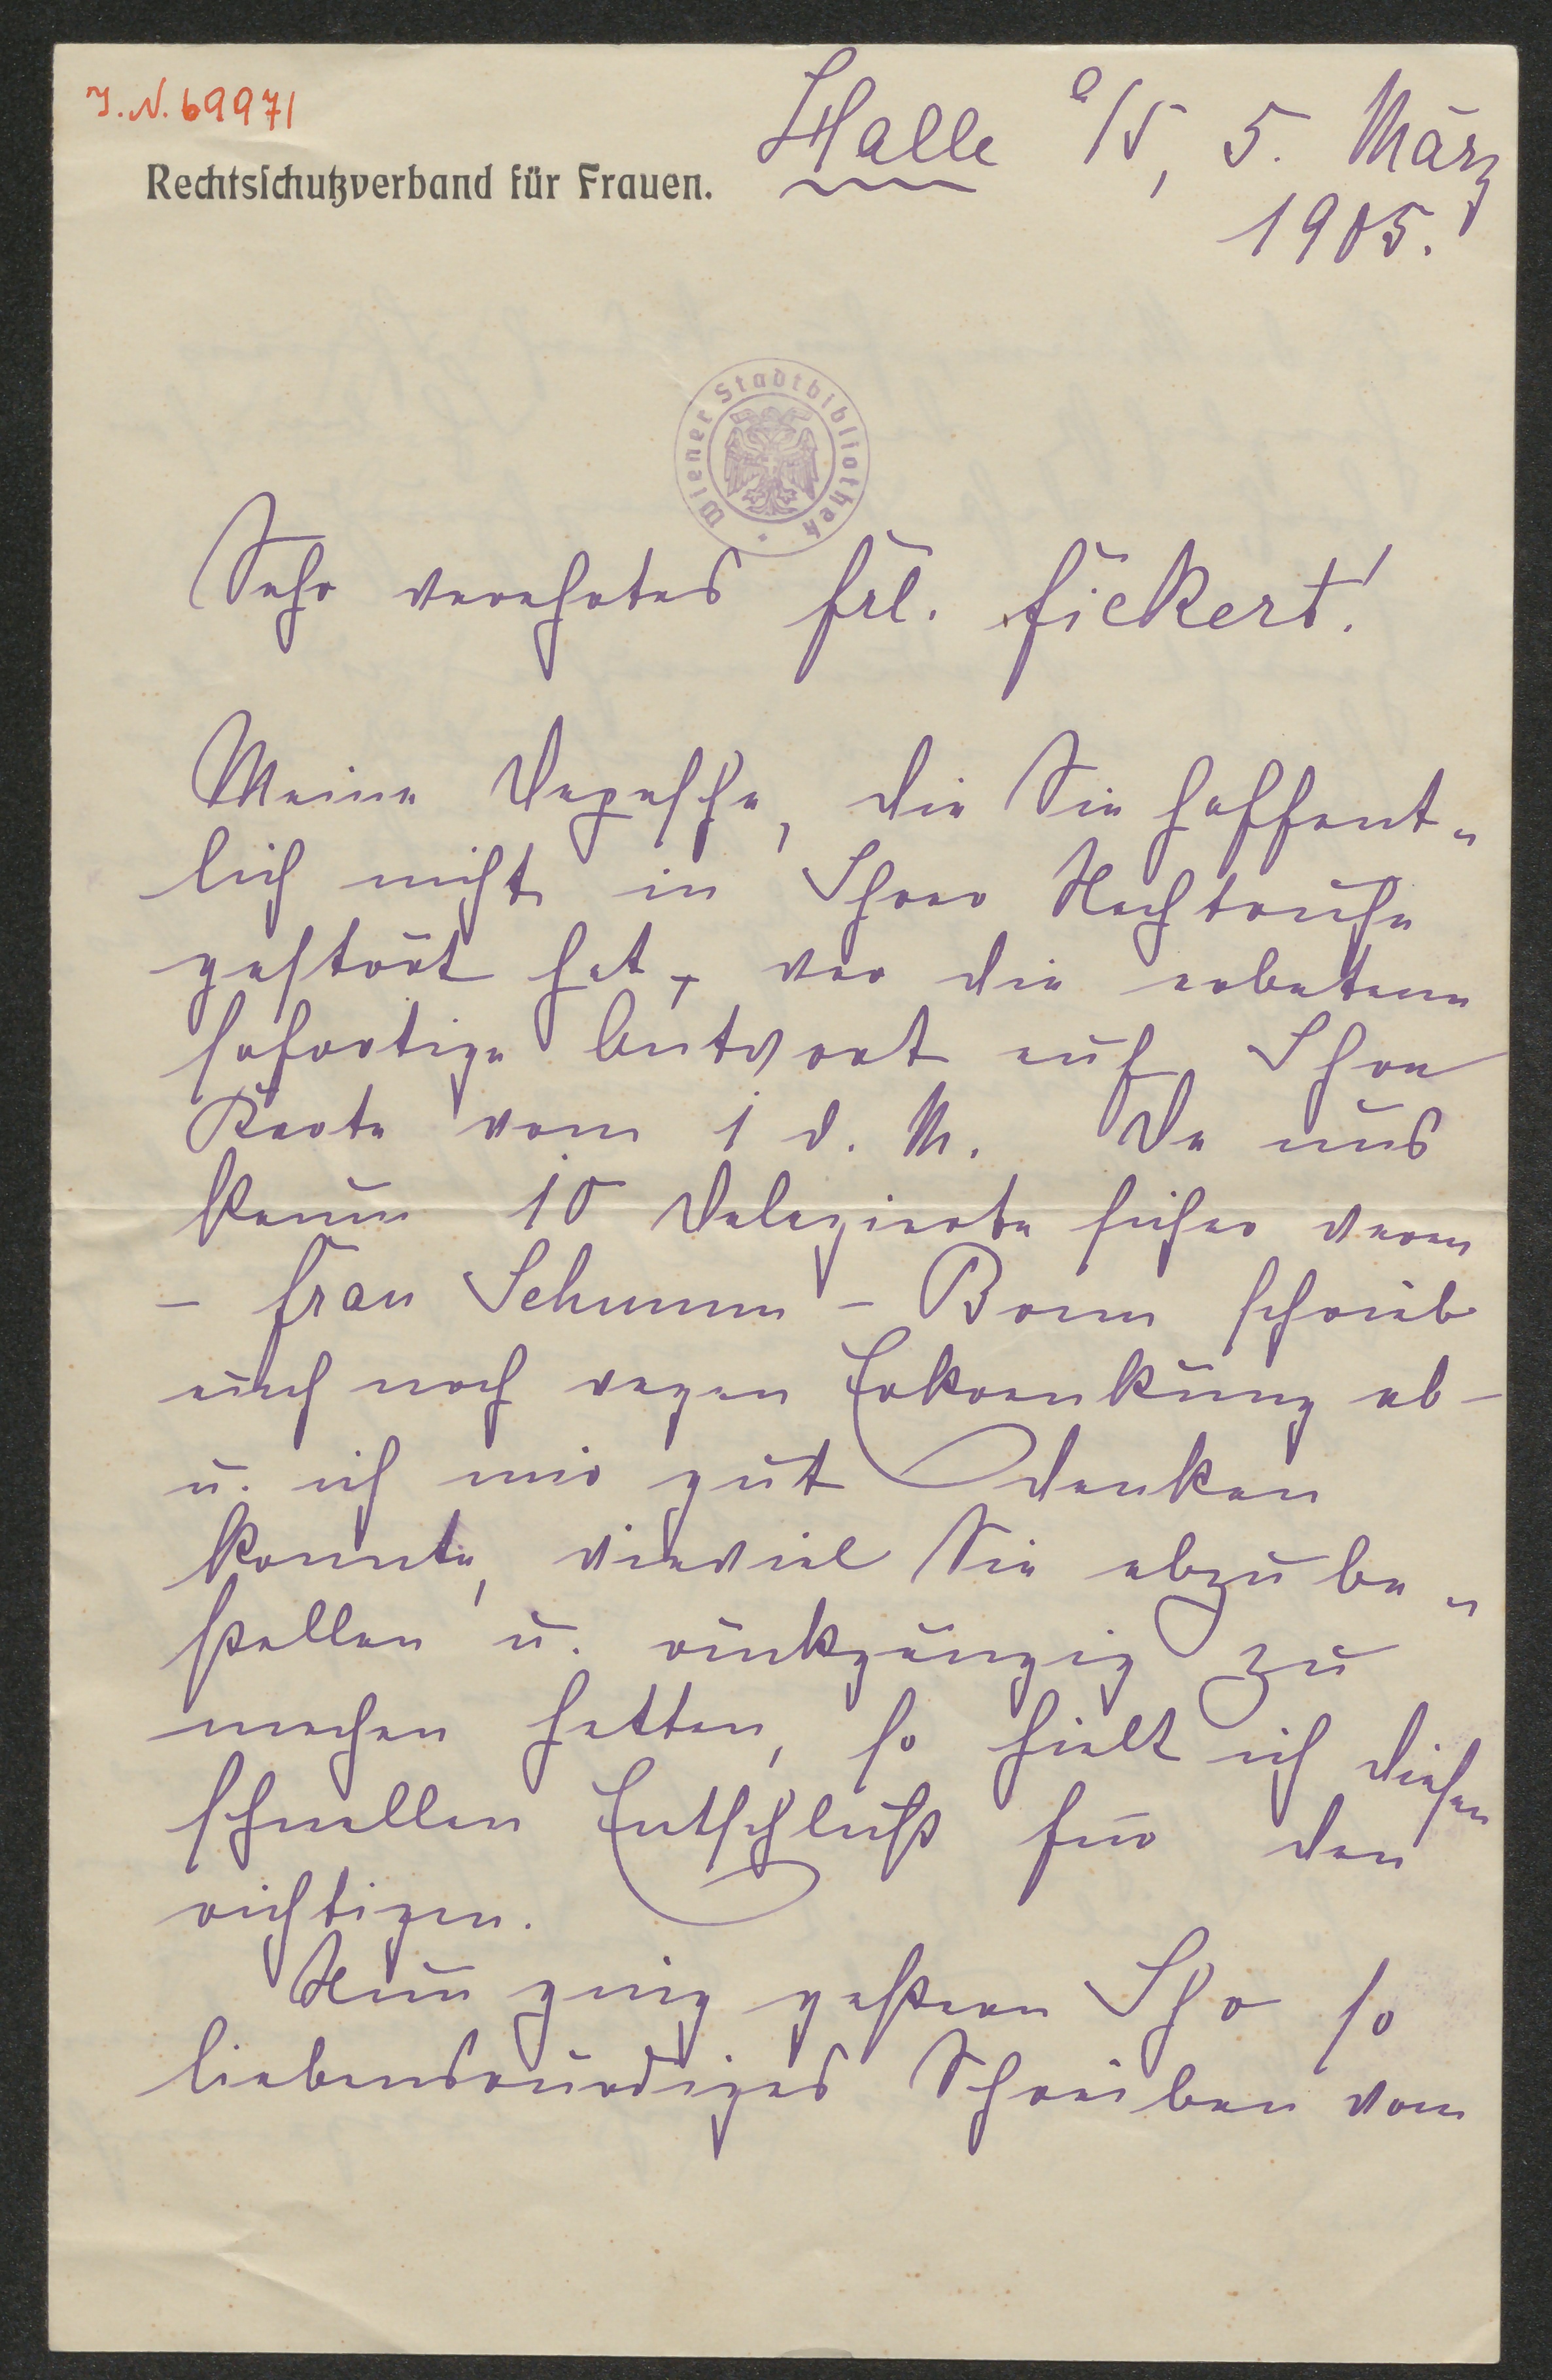 J.N. 69971
Rechtsschutzverband für Frauen.
Halle a/S, 5. März
1905.
Wiener Stadtbibliothek
Sehr verehrtes Frl. Fickert!
Meine Depesche, die Sie hoffent„
lich nicht in Ihrer Nachtruhe
gestört hat, war die erbetene
sofortige Antwort auf Ihre
Karte vom 1 d. M. Da uns
kaum 10 Delegierte sicher waren
– Frau Schumm – Bonn schrieb
auch noch wegen Erkrankung ab –
u. ich mir gut denken
konnte, wieviel Sie abzube„
stellen u. rückgängig zu
machen hatten, so hielt ich diesen
schnellen Entschluß für den
richtigen.
Nun ging gestern Ihr so
liebenswürdiges Schreiben vom